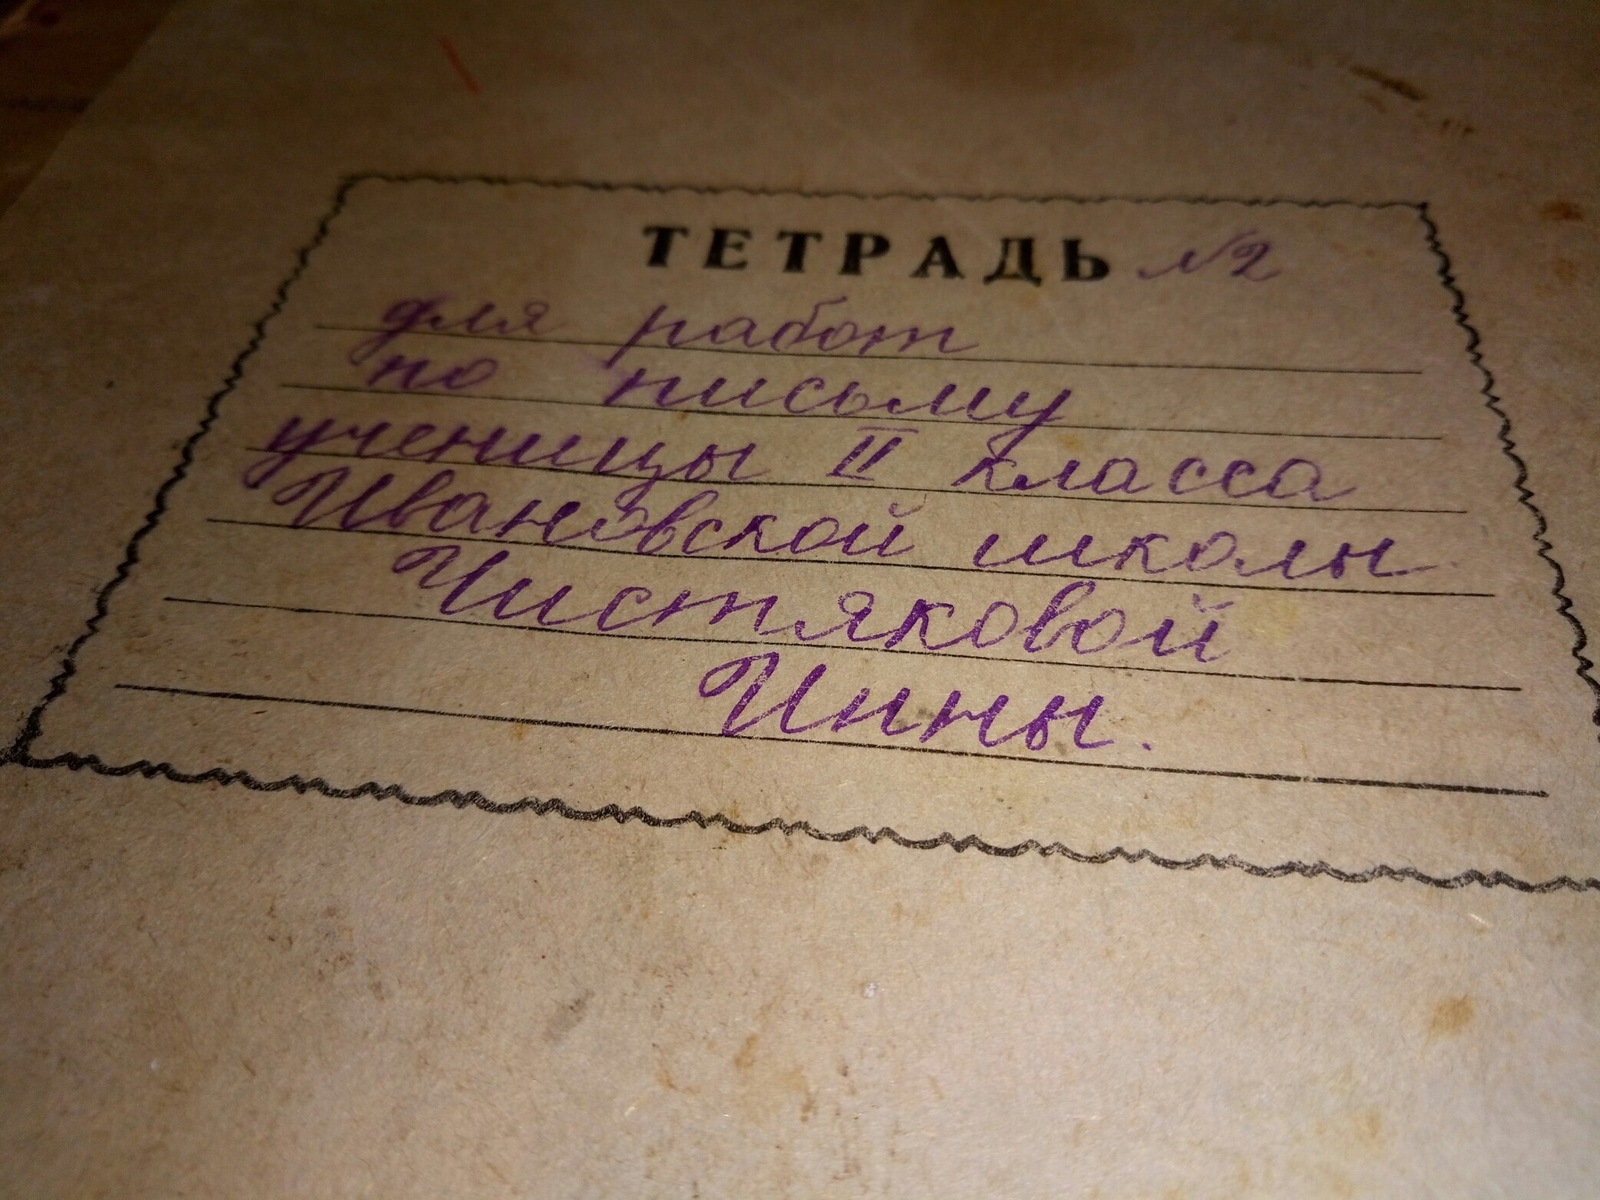 ТЕТРАДЬ №2
для работ
по письму
ученицы II класса
Ивановской школы
Чистяковой
Инны.